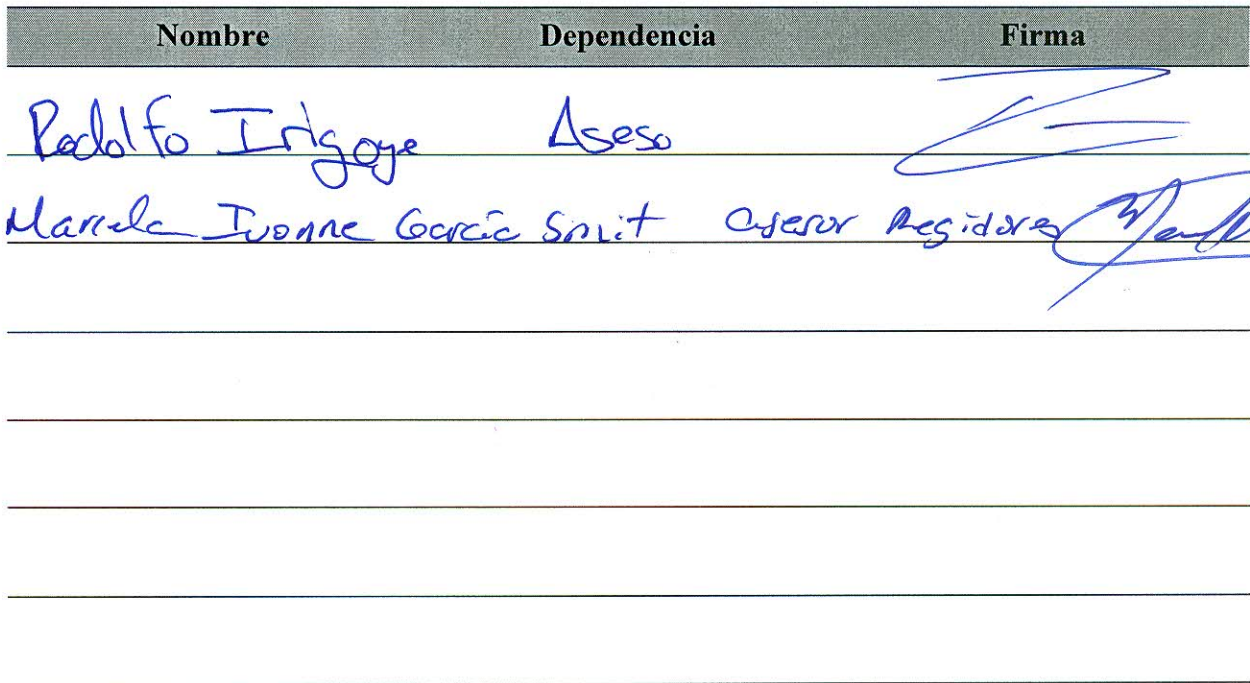 Nombre Dependencia Firma
Rodolfo Irigoye Aseso
Marcela Ivonne García Smit Asesor Regidores